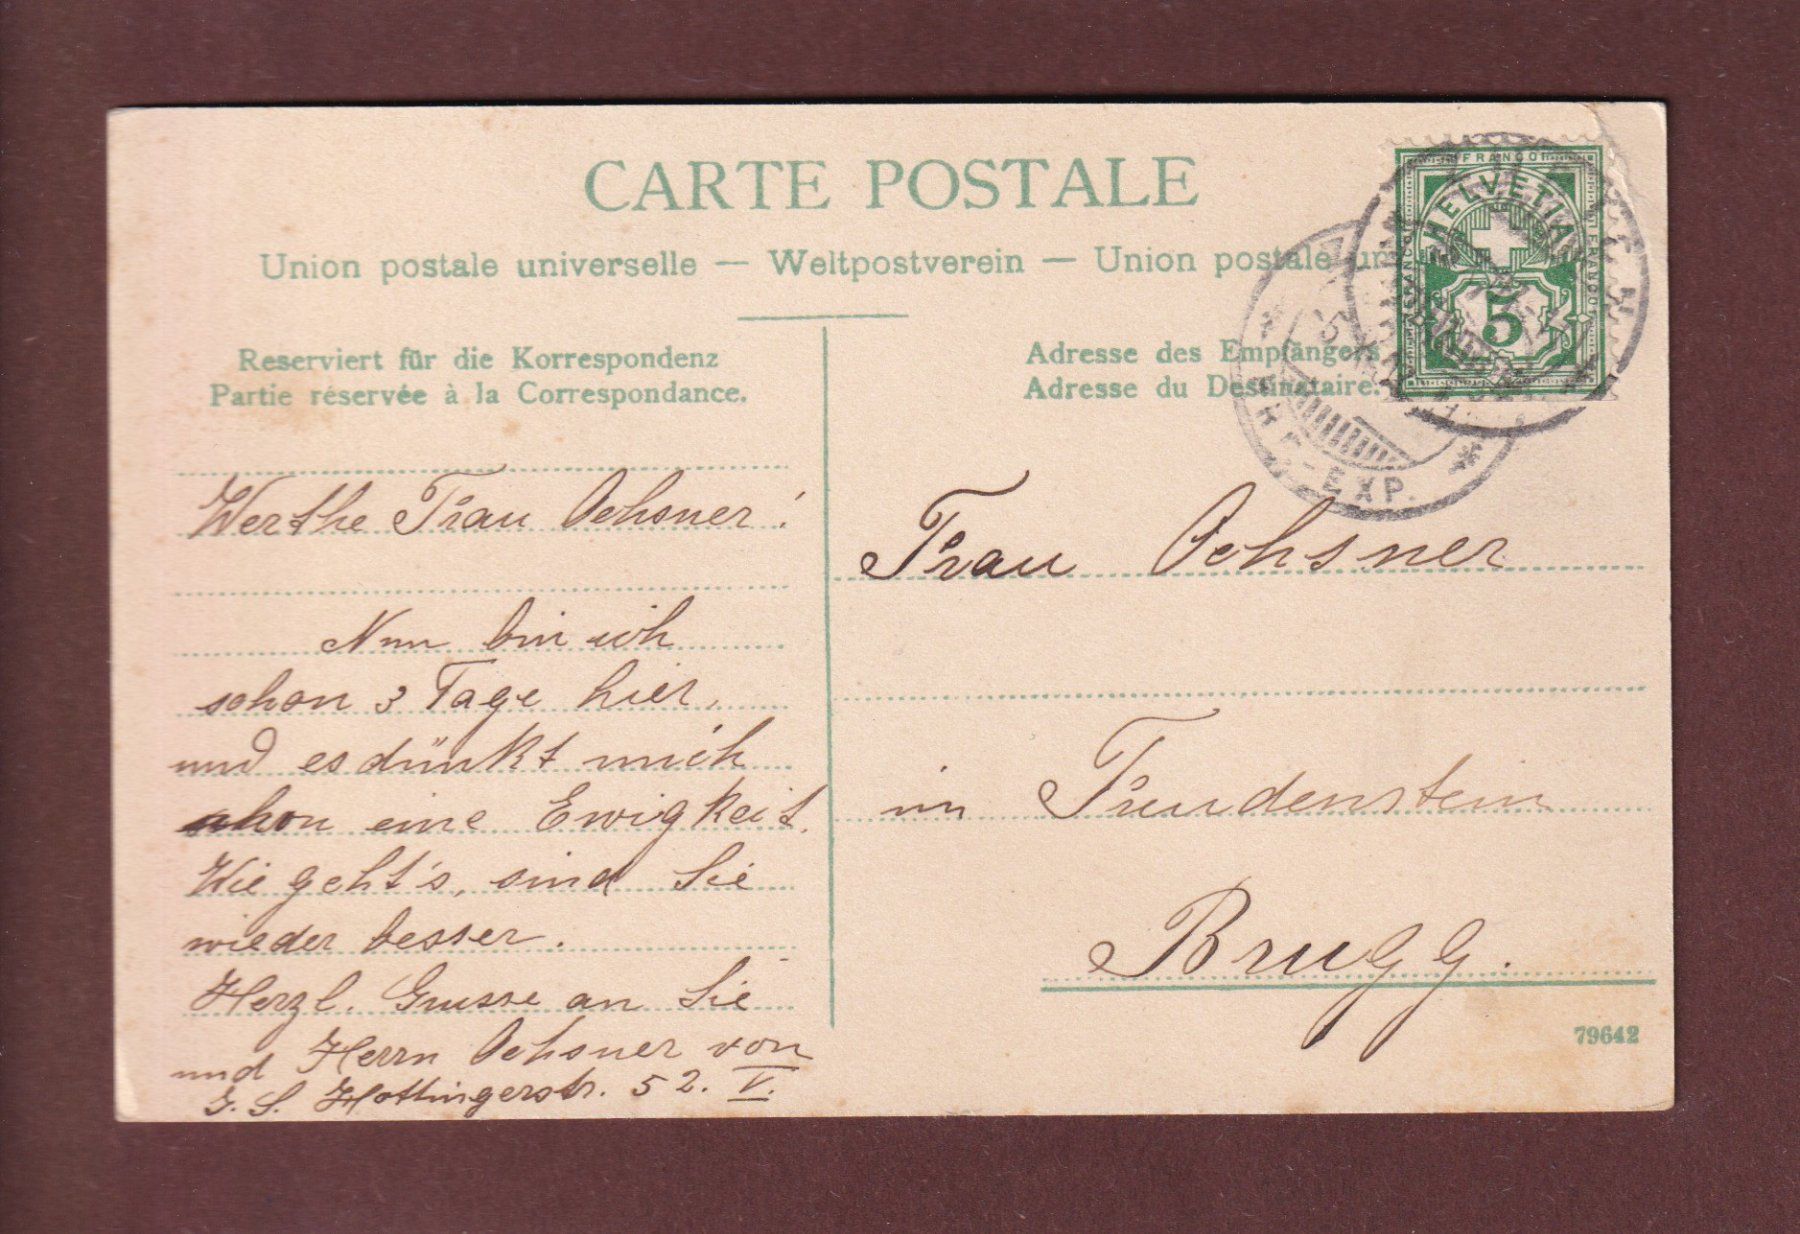 CARTE POSTALE
Union postale universelle — Weltpostverein — Union postale
Reserviert für die Korrespondenz
Partie réservée à la Correspondance.
Adresse des Empfängers
Adresse du Destinataire.
FRANCO
HELVETIA
FRANCO
FRANCO
5
EXP.
Werthe Frau Ochsner!
Nun bin ich
schon 3 Tage hier,
und es dünkt mich
schon eine Ewigkeit.
Wie geht's, sind Sie
wieder besser.
Herzl. Grusse an Sie
und Herrn Ochsner von
J. S. Hottingerstr. 52. V.
Frau Ochsner
im Freudenstein
Brugg.
79642